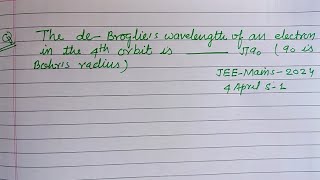 Q The de-Broglie's wavelength of an electron
in the 4th orbit is ______ πa₀ (a₀ is
Bohr's radius)
JEE-Mains-2024
4 April S-1